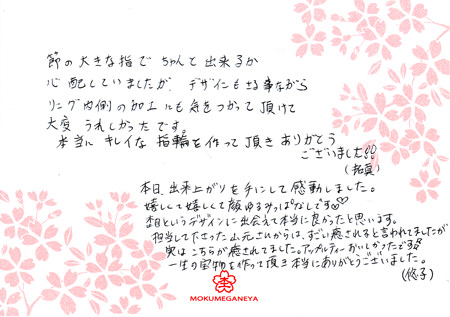 節の大きな指で ちゃんと出来るか
心配していましたが、デザインもさる事ながら
リング内側の加工にも気をつかって頂けて
大変 うれしかったです。
本当に キレイな 指輪を作って頂き ありがとう
ございました!!
(拓真)
本日、出来上がりを手にして感動しました。
嬉しくて嬉しくて顔ゆるみっぱなしです♡♡
杢目というデザインに出会えて本当に良かったと思います。
担当して下さった山元さんからは、すごい癒されると言われてましたが
実はこちらが癒されてました。アップルティーおいしかったです
一生の宝物を作って頂き本当にありがとうございました。
(悠子)
MOKUMEGANEYA